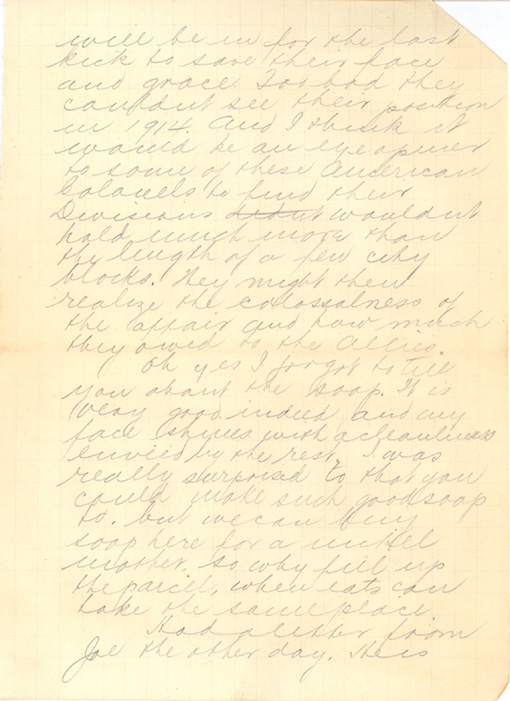 will be in for the last
kick to save their face
and grace. Too bad they
couldnt see their position
in 1914. And I think it
would be an eyeopener
to some of these American
Colonells to find their
Divisions didnt wouldnt
hold much more than
the length of a few city
blocks. They might then
realize the colossalness of
the affair and how much
they owed to the Allies.
Oh yes I forgot to tell
you about the soap. It is
very good indeed and my
face shines with a cleanliness
envied by the rest. I was
really surprised to that you
could make such good soap
to. but we can buy
soap here for a nickel
mother. so why fill up
the parcel, when eats can
take the same place.
Had a letter from
Joe the other day. He is